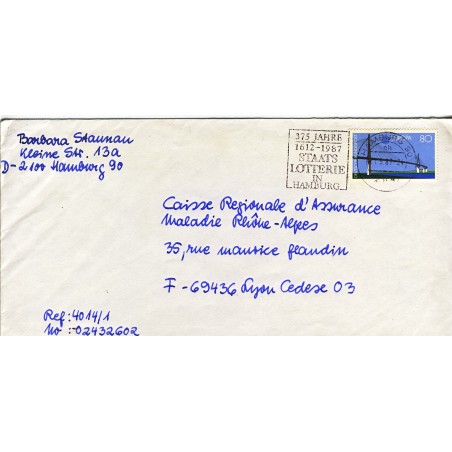 Barbara Staunau
Kleine Str. 13a
D-2100 Hamburg 90
375 JAHRE
1612-1987
STAATS
LOTTERIE
IN
HAMBURG
80
Caisse Regionale d'Assurance
Maladie Rhône-Alpes
35, rue maurice flandin
F-69436 Lyon Cedese 03
Ref: 4014/1
No: 02432602